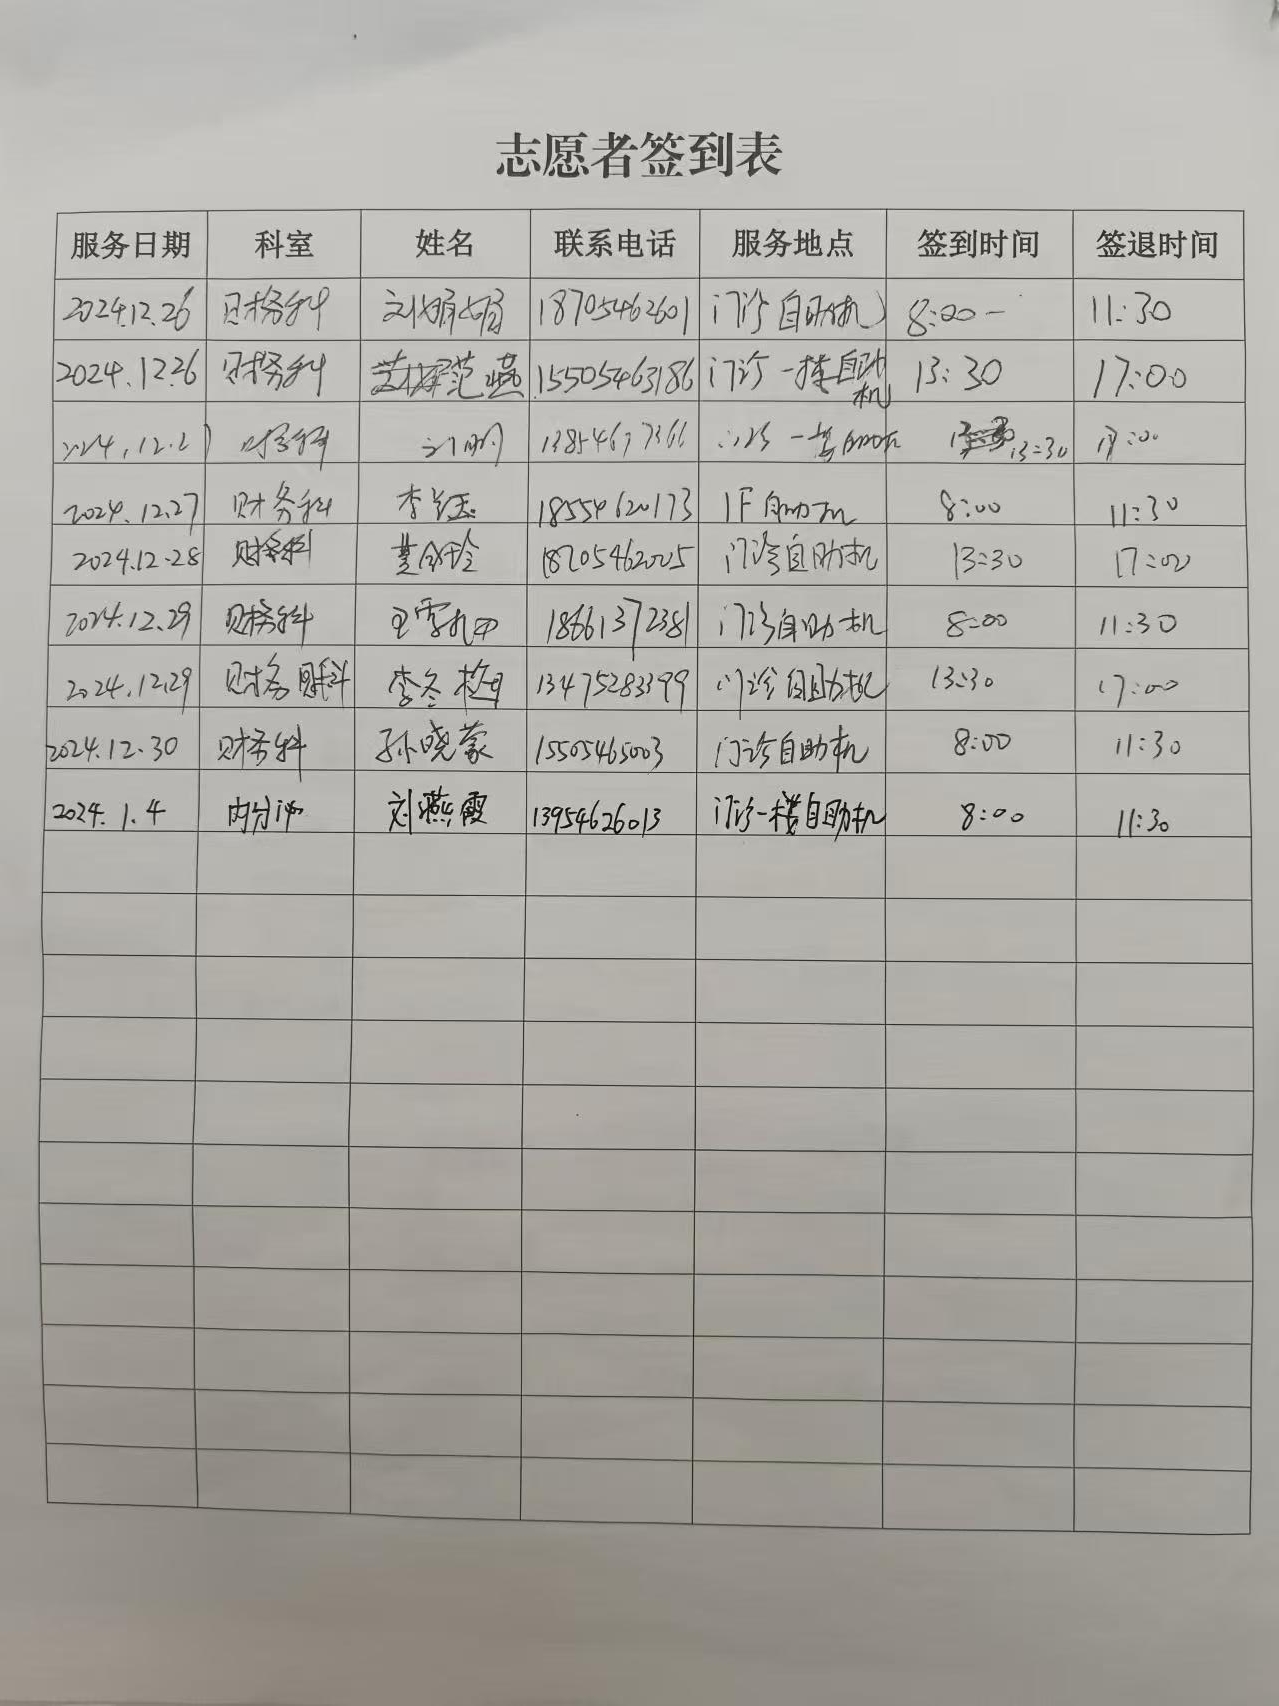 志愿者签到表
服务日期 科室 姓名 联系电话 服务地点 签到时间 签退时间
2024.12.26 财务科 刘娟娟 18705462601 门诊自助机 8:00 11:30
2024.12.26 财务科 范燕 15505463186 门诊一楼自助机 13:30 17:00
2024.12.27 财务科 13854677366 13:30 17:00
2024.12.27 财务科 李钰 18554620173 1F自助机 8:00 11:30
2024.12.28 财务科 18705462005 门诊自助机 13:30 17:00
2024.12.29 财务科 王雪 18661372381 门诊自助机 8:00 11:30
2024.12.29 财务科 李冬梅 13475283399 门诊自助机 13:30 17:00
2024.12.30 财务科 孙晓蒙 15505465003 门诊自助机 8:00 11:30
2024.1.4 内分泌 刘燕霞 13954626013 门诊一楼自助机 8:00 11:30